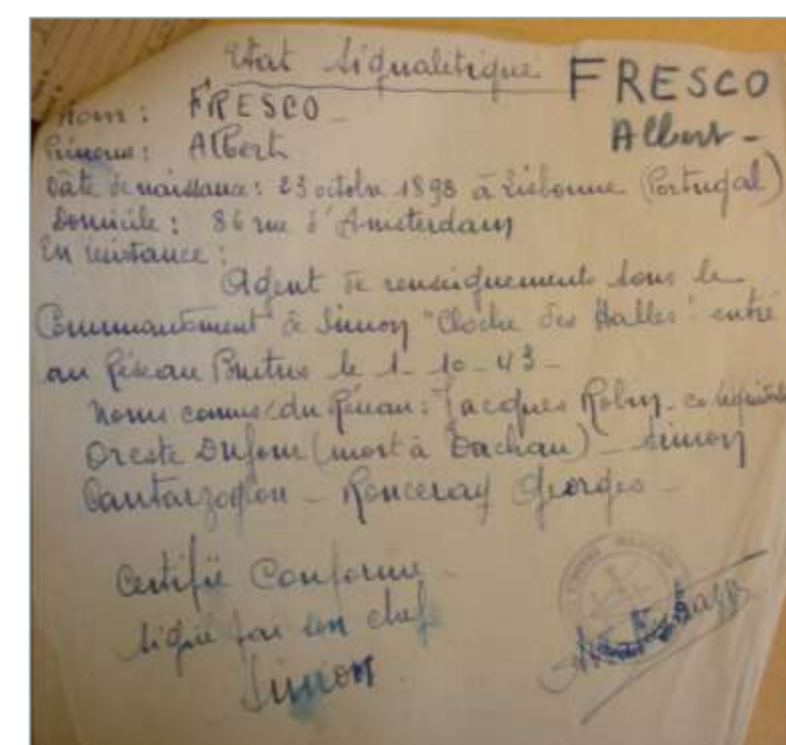 Etat Signalétique FRESCO
Albert -
Nom : FRESCO -
Prénoms : Albert
Date de naissance : 23 octobre 1898 à Lisbonne (Portugal)
Domicile : 86 rue d'Amsterdam
En résistance :
Agent de renseignements sous le
Commandement de Simon "Cloche des Halles" entré
au Réseau Brutus le 1_10_43_
Noms connus du Réseau : Jacques Robin -
Oreste Dufour (mort à Dachau) _ Simon
Cantarzoglou _ Ronceray Georges _
Certifié Conforme _
Signé par son chef
Simon